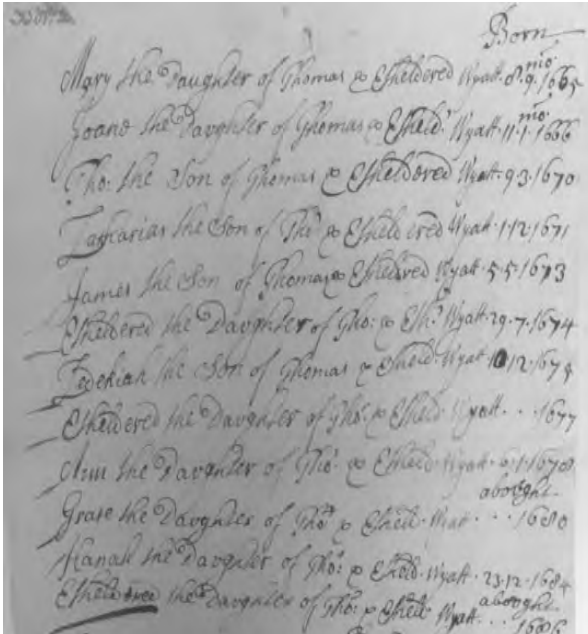 Born
mo
Mary the Daughter of Thomas & Etheldered Wyatt. 8. 9. 1665
mo
Joane the Daughter of Thomas & Etheld: Wyatt. 11. 1. 1666
Tho: the Son of Thomas & Etheldered Wyatt. 9 3. 1670
Zaycarias the Son of Tho: & Etheldered Wyatt. 1. 12. 1671
James the Son of Thomas & Etheldered Wyatt. 5. 5. 1673
Etheldered the Daughter of Tho: & Eth: Wyatt. 29. 7. 1674
Zedekiah the Son of Thomas & Etheld: Wyatt 12. 1674
Etheldered the Daughter of Tho: & Etheld: Wyatt . . . 1677
Ann the Daughter of Tho: & Etheld: Wyatt. 1. 1678
abought.
Grace the Daughter of Tho: & Etheld: Wyatt . . . 1680
Hanah the Daughter of Tho: & Etheld: Wyatt. 23. 12. 1684
abought.
Etheldered the Daughter of Tho: & Etheld: Wyatt . . . 1686